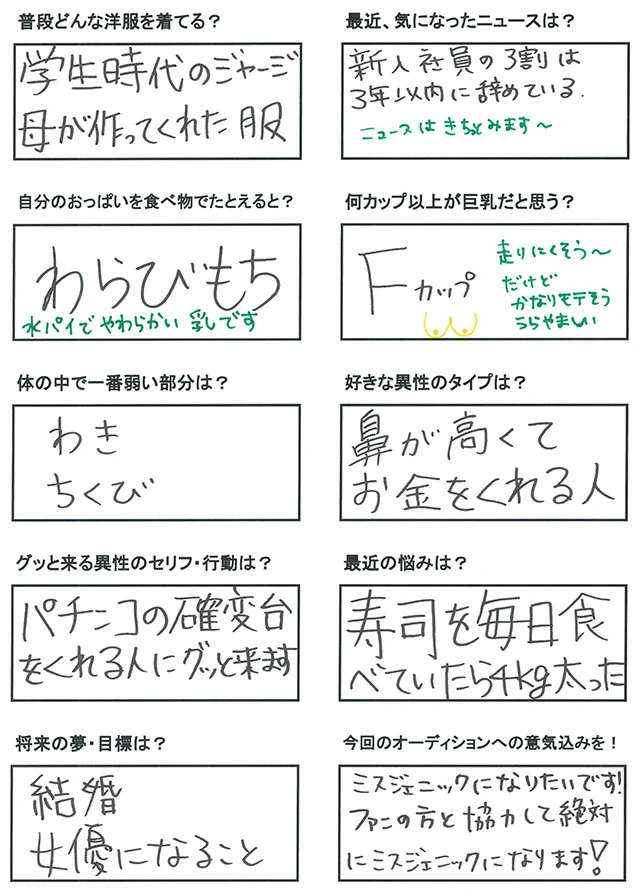 普段どんな洋服を着てる？
学生時代のジャージ
母が作ってくれた服
最近、気になったニュースは？
新入社員の3割は
3年以内に辞めている.
ニュースはきちっとみます～
自分のおっぱいを食べ物でたとえると？
わらびもち
水パイでやわらかい乳しです
何カップ以上が巨乳だと思う？
Fカップ
走りにくそう～
だけど
かなりモテそう
うらやましい
体の中で一番弱い部分は？
わき
ちくび
好きな異性のタイプは？
鼻が高くて
お金をくれる人
グッと来る異性のセリフ・行動は？
パチンコの確変台
をくれる人にグッと来ます
最近の悩みは？
寿司を毎日食
べていたら4kg太った
将来の夢・目標は？
結婚
女優になること
今回のオーディションへの意気込みを！
ミスジェニックになりたいです!
ファンの方と協力して絶対
にミスジェニックになります!